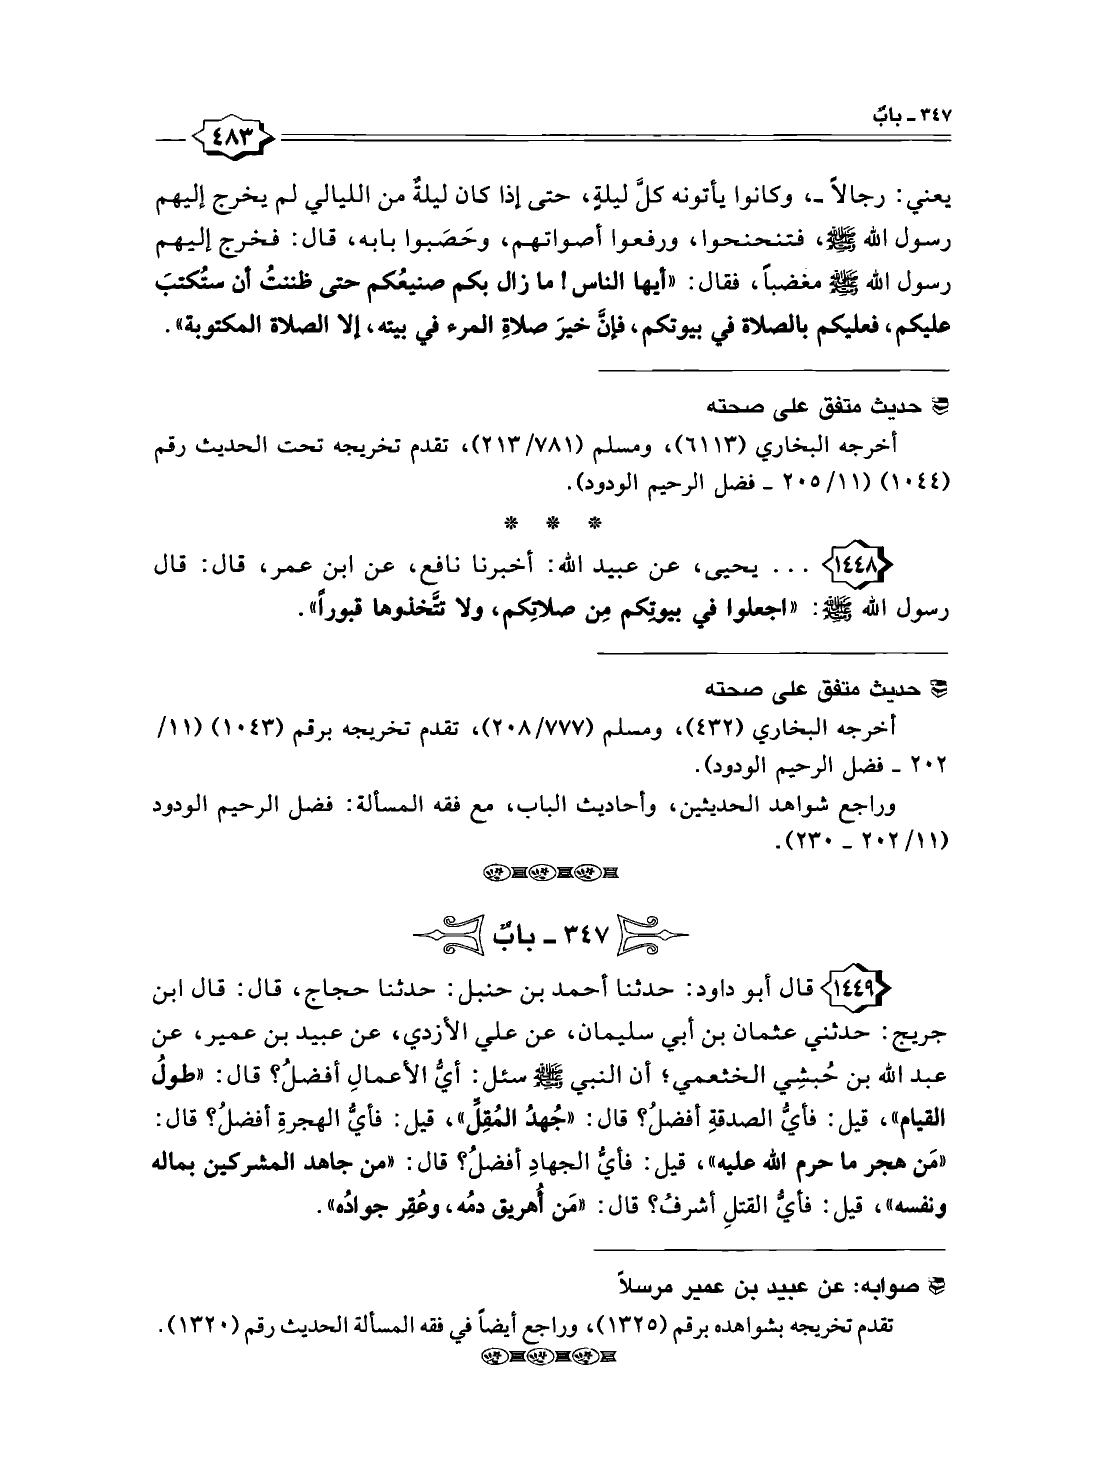 ٣٤٧ ـ بابٌ
٤٨٣
يعني: رجالاً ـ، وكانوا يأتونه كلَّ ليلةٍ، حتى إذا كان ليلةٌ من الليالي لم يخرج إليهم
رسول الله ﷺ، فتنحنحوا، ورفعوا أصواتهم، وحَصَبوا بابه، قال: فخرج إليهم
رسول الله ﷺ مغضباً، فقال: «أيها الناس! ما زال بكم صنيعُكم حتى ظننتُ أن ستُكتبَ
عليكم، فعليكم بالصلاة في بيوتكم، فإنَّ خيرَ صلاةِ المرء في بيته، إلا الصلاة المكتوبة».
حديث متفق على صحته
أخرجه البخاري (٦١١٣)، ومسلم (٢١٣/٧٨١)، تقدم تخريجه تحت الحديث رقم
(١٠٤٤) (٢٠٥/١١ ـ فضل الرحيم الودود).
* * *
١٤٤٨ ... يحيى، عن عبيد الله: أخبرنا نافع، عن ابن عمر، قال: قال
رسول الله ﷺ: «اجعلوا في بيوتِكم مِن صلاتِكم، ولا تتَّخذوها قبوراً».
حديث متفق على صحته
أخرجه البخاري (٤٣٢)، ومسلم (٢٠٨/٧٧٧)، تقدم تخريجه برقم (١٠٤٣) (١١/
٢٠٢ ـ فضل الرحيم الودود).
وراجع شواهد الحديثين، وأحاديث الباب، مع فقه المسألة: فضل الرحيم الودود
(٢٠٢/١١ ـ ٢٣٠).
٣٤٧ ـ بابٌ
١٤٤٩ قال أبو داود: حدثنا أحمد بن حنبل: حدثنا حجاج، قال: قال ابن
جريج: حدثني عثمان بن أبي سليمان، عن علي الأزدي، عن عبيد بن عمير، عن
عبد الله بن حُبشِي الخثعمي؛ أن النبي ﷺ سئل: أيُّ الأعمالِ أفضلُ؟ قال: «طولُ
القيام»، قيل: فأيُّ الصدقةِ أفضلُ؟ قال: «جُهدُ المُقِلِّ»، قيل: فأيُّ الهجرةِ أفضلُ؟ قال:
«مَن هجر ما حرم الله عليه»، قيل: فأيُّ الجهادِ أفضلُ؟ قال: «من جاهد المشركين بماله
ونفسه»، قيل: فأيُّ القتلِ أشرفُ؟ قال: «مَن أُهريق دمُه، وعُقِر جوادُه».
صوابه: عن عبيد بن عمير مرسلاً
تقدم تخريجه بشواهده برقم (١٣٢٥)، وراجع أيضاً في فقه المسألة الحديث رقم (١٣٢٠).